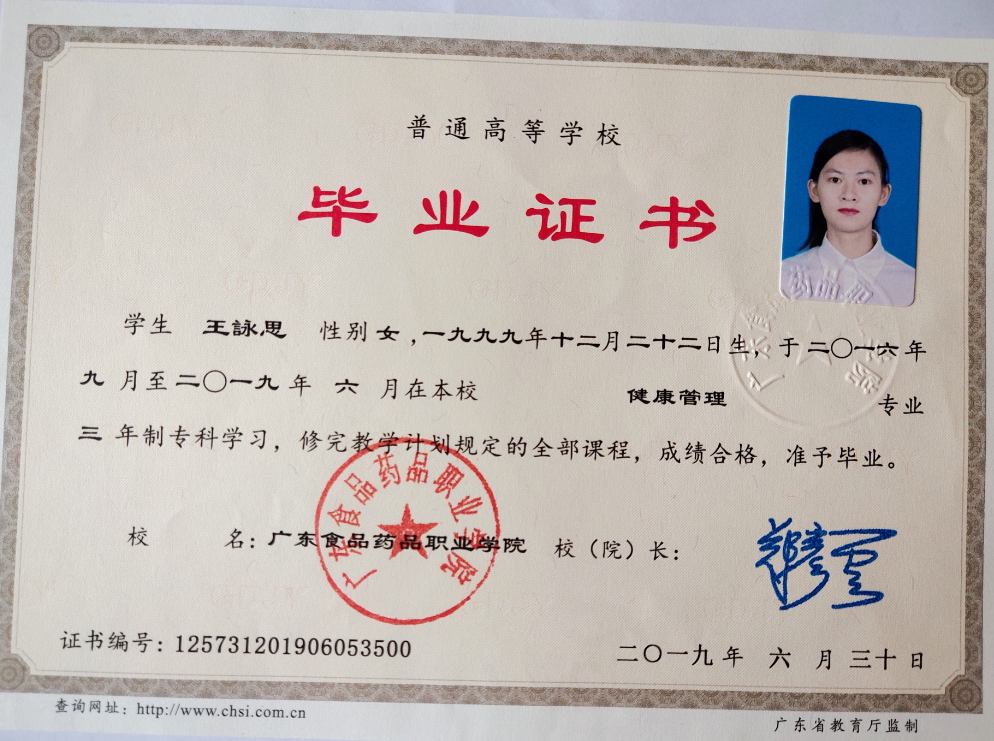 普通高等学校
毕业证书
学生 王詠思 性别 女,一九九九年十二月二十二日生，于二〇一六年
九月至二〇一九年 六 月在本校 健康管理 专业
三 年制专科学习，修完教学计划规定的全部课程，成绩合格，准予毕业。
校 名：广东食品药品职业学院 校（院）长：
广东食品药品职业学院
证书编号：125731201906053500
二〇一九年 六 月 三十 日
查询网址：http://www.chsi.com.cn
广东省教育厅监制